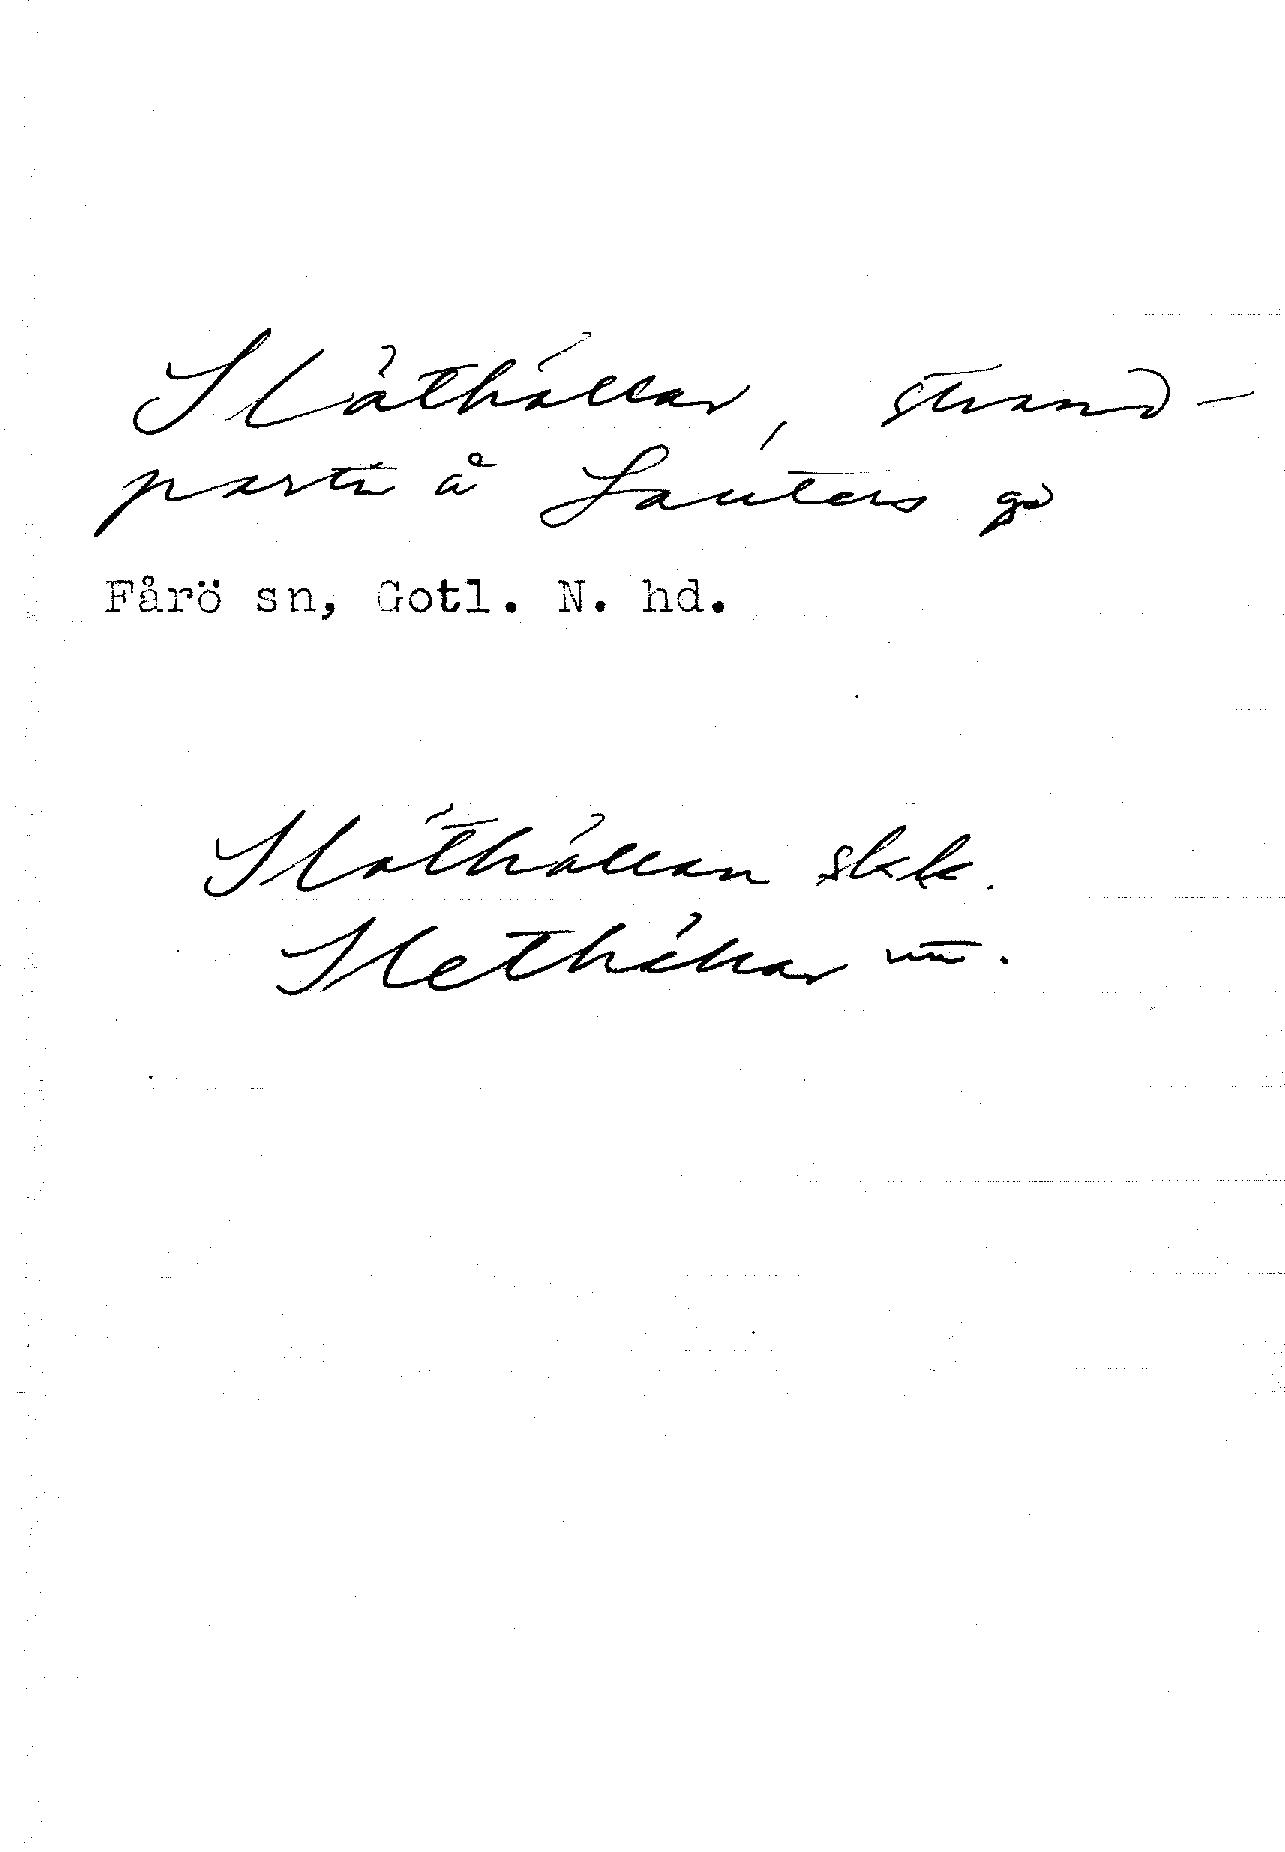 Släthällar, strand-
parti å Lauters gd
Fårö sn, Gotl. N. hd.
Släthällan skk.
Slethällar